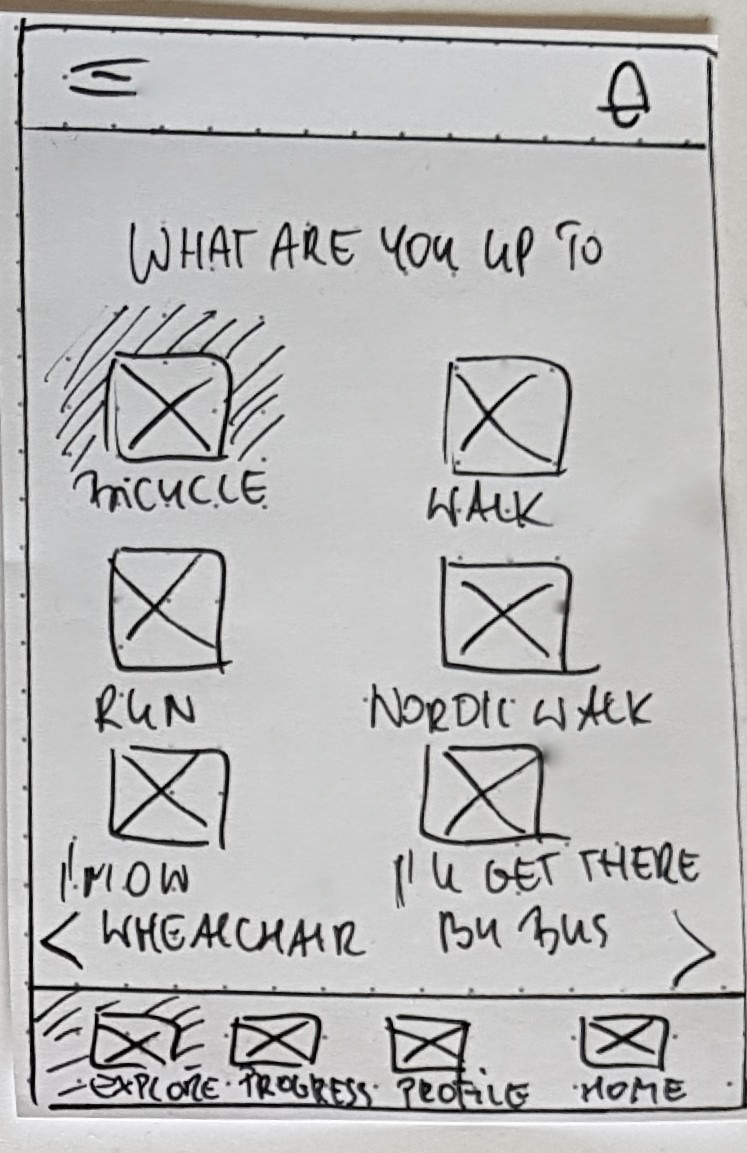 WHAT ARE YOU UP TO
BICYCLE
WALK
RUN
NORDIC WALK
I'M OW
WHEALCHAIR
I'LL GET THERE
BY BUS
EXPLORE
PROGRESS
PROFILE
HOME